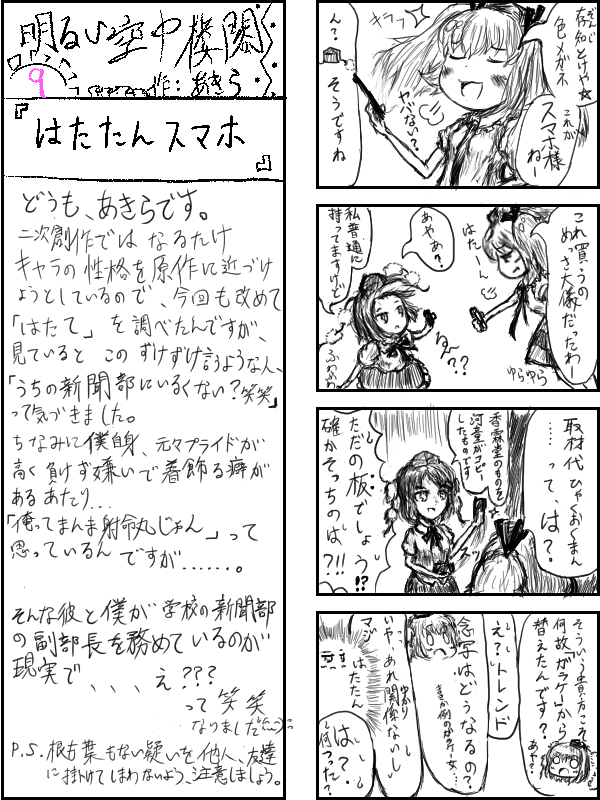 明るい空中楼閣
9
作：あきら
『はたたんスマホ』
どうも、あきらです。
二次創作では なるたけ
キャラの性格を原作に近づけ
ようとしているので、今回も改めて
「はたて」を調べたんですが、
見ていると この ずけずけ言うような人、
「うちの新聞部にいるくない？笑笑」
って気づきました。
ちなみに僕自身、元々プライドが
高く負けず嫌いで着飾る癖が
あるあたり…
「俺ってまんま射命丸じゃん」って
思っているんですが……。
そんな彼と僕が学校の新聞部
の副部長を務めているのが
現実で、、、え？？？
って笑笑
なりました
P.S. 根も葉もない疑いを他人、友達
に掛けてしまわないよう、注意しましょう。
存知とけや☆
ぞんじ
色メガネ
これが
スマホ様
ねー
キラッ
ヤバない？
ん？
そうですね
これ買うの
めっさ大儀だったわー
はたーん
ゆらゆら
あやあ？
私普通に
持ってますけど
る〜??
ふわふわ
取材代ひゃくおくまん
……って、は？
香霖堂のものを
河童がコピー
したものです
ただの板でしょう!?
確かそっちのは?!!
そういう貴方こそ
何故「ガラケー」から
替えたんです？
あや？
え？トレンド
念写はどうなるの？
いや、あれ関係ないし
マジ
はたたん
は？
何つった？